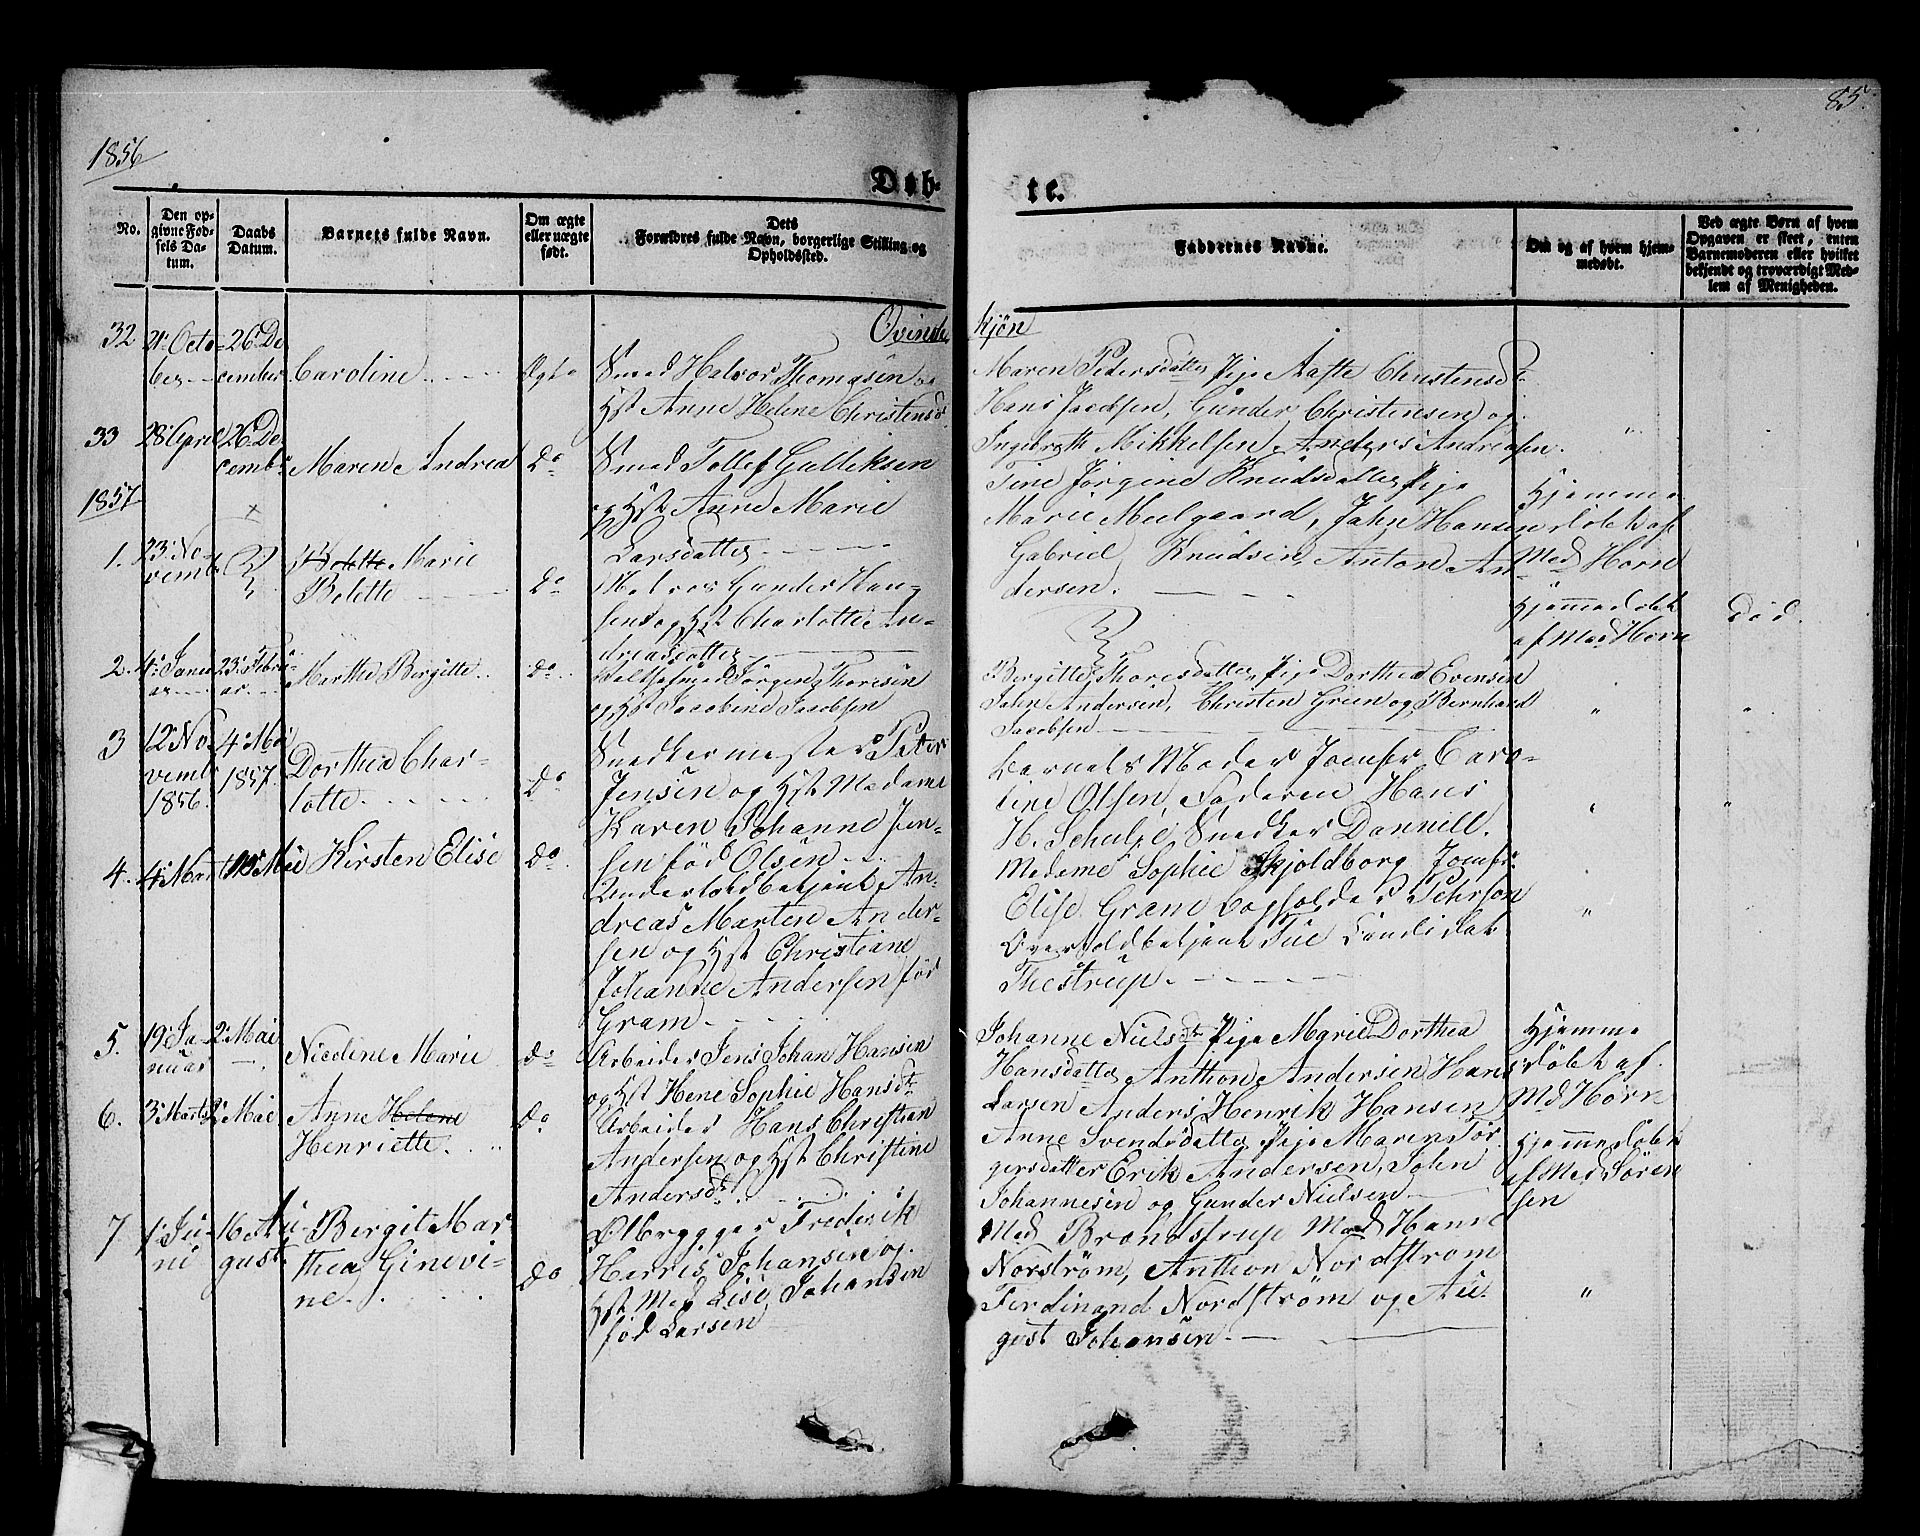 85.
1856
Døb-
te.
No.
Den op-
givne Fød-
sels Da-
tum.
Daabs
Datum.
Barnets fulde Navn.
Om ægte
eller uægte
født.
Dets
Forældres fulde Navn, borgerlige Stilling og
Opholdssted.
Faddernes Navne.
Om og af hvem hjem-
medøbt.
Ved ægte Børn af hvem
Opgaven er skeet, enten
Barnemoderen eller hvilket
bekjendt og troværdigt Med-
lem af Menigheden.
Qvinde
kjön
32 21 Octo- 26 De
ber cember Caroline Ægte Smed Halvor Thomasen og
Hst Anne Helene Christensd.
Maren Pedersdatter Pige Aaste Christensd.
Hans Jacobsen, Gunder Christensen og
Ingebreth Mikkelsen, Anders Andreasen.
33 28 April 26 De
cembr Maren Andrea Do Smed Tollef Gulliksen
og Hst Anne Marie
Larsdatter
Tine Jørgine Knudsdatter Pige
Marie Meelgaard, Jahn Hansen
Gabriel Knudsen, Anton An-
dersen.
Hjemme
døbt af
Mad Horn
1857
1. 23 No-
vembr Bolette Marie
Bolette Do Halvor Gunder Han-
sen og Hst Charlotte An-
dreasdatter
Hjemmedøbt
af Mad Horn
Död.
2. 4 Janu 23 Febru
ar ar. Marthe Bergitte Do Jørgen Thoresen
og Hst Jacobine Jacobsen
Bergitte Thoresdatter, Pige Dorthea Evensen
Jahn Andersen, Christen Green og Bernhard
Jacobsen
3 12 No- 4 Mai
vembr 1857.
1856. Dorthea Char-
lotte Do Snedkermester Peter
Jensen og Hst Madame
Karen Johanne Jen-
sen fød Olsen
Barnets Moder Jomfr Caro-
line Olsen, Faderen Hans
H. Schulze Snedker Daniell.
4. 4 Marts Mai Kirsten Elise Do Undertoldbetjent An-
dreas Marten Ander-
sen og Hst Christiane
Johanne Andersen fød
Gram
Madame Sophie Skjoldborg Jomfr
Elise Gram Bogholder Pehrson
Overtoldbetjent Tue Candidat
Thestrup.
5. 19 Ja- 2 Mai
nuar Nicoline Marie Do Arbeider Jens Johan Hansen
og Hst Hene Sophie Hansdtr
Johanne Nielsdtr Pige Marie Dorthea
Hansdatter Anthon Andersen Hans
Larsen Anders Henrik Hansen
Hjemme
døbt af
Md Horn
6. 3 Marts 2 Mai Anne Helene
Henriette Do Arbeider Hans Christian
Andersen og Hst Christine
Andersdt.
Anne Svendsdatter Pige Maren Tor-
gersdatter Erik Andersen, John
Johannesen og Gunder Nielsen
Hjemmedøbt
af Mad Søren
sen
7 1 Ju- 16 Au-
ni gust Bergit Mar
thea Ginevi-
ne. Do Ølbrygger Frederik
Harris Johansen og
Hst Mad Lise Johansen
fød Larsen
Mad Brandstrup Mad Hanne
Norström, Anthon Nordstrom
Ferdinand Nordström og Au-
gust Johansen.